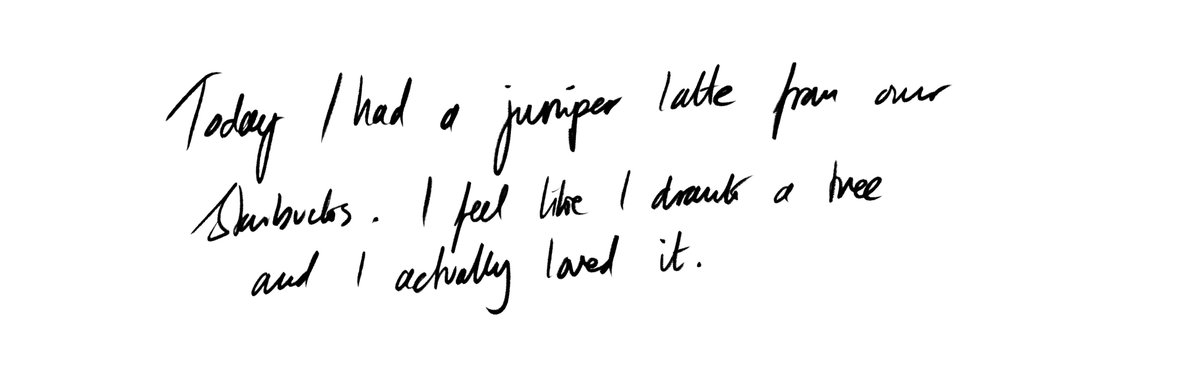 Today I had a juniper latte from our
Starbucks. I feel like I drank a tree
and I actually loved it.